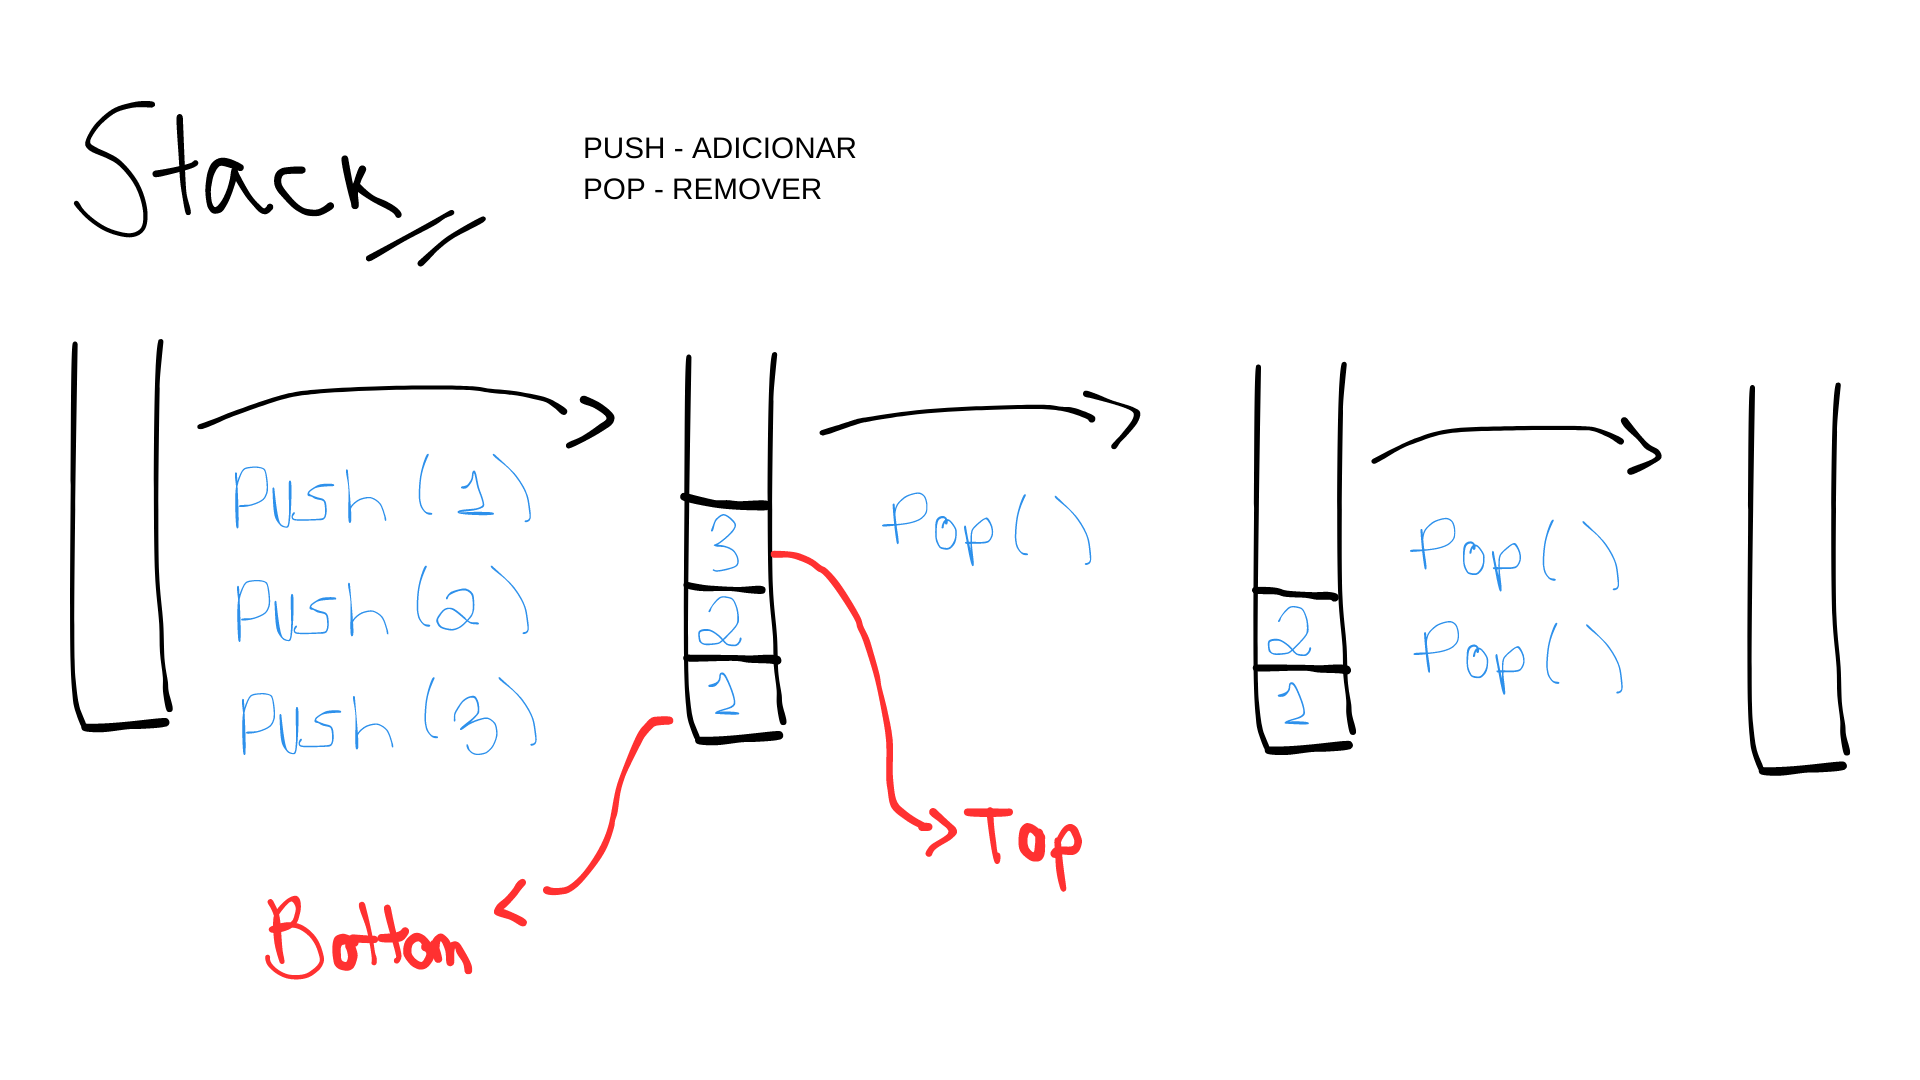 Stack
PUSH - ADICIONAR
POP - REMOVER
Push(1)
Push(2)
Push(3)
3
2
1
Pop()
2
1
Pop()
Pop()
Top
Bottom